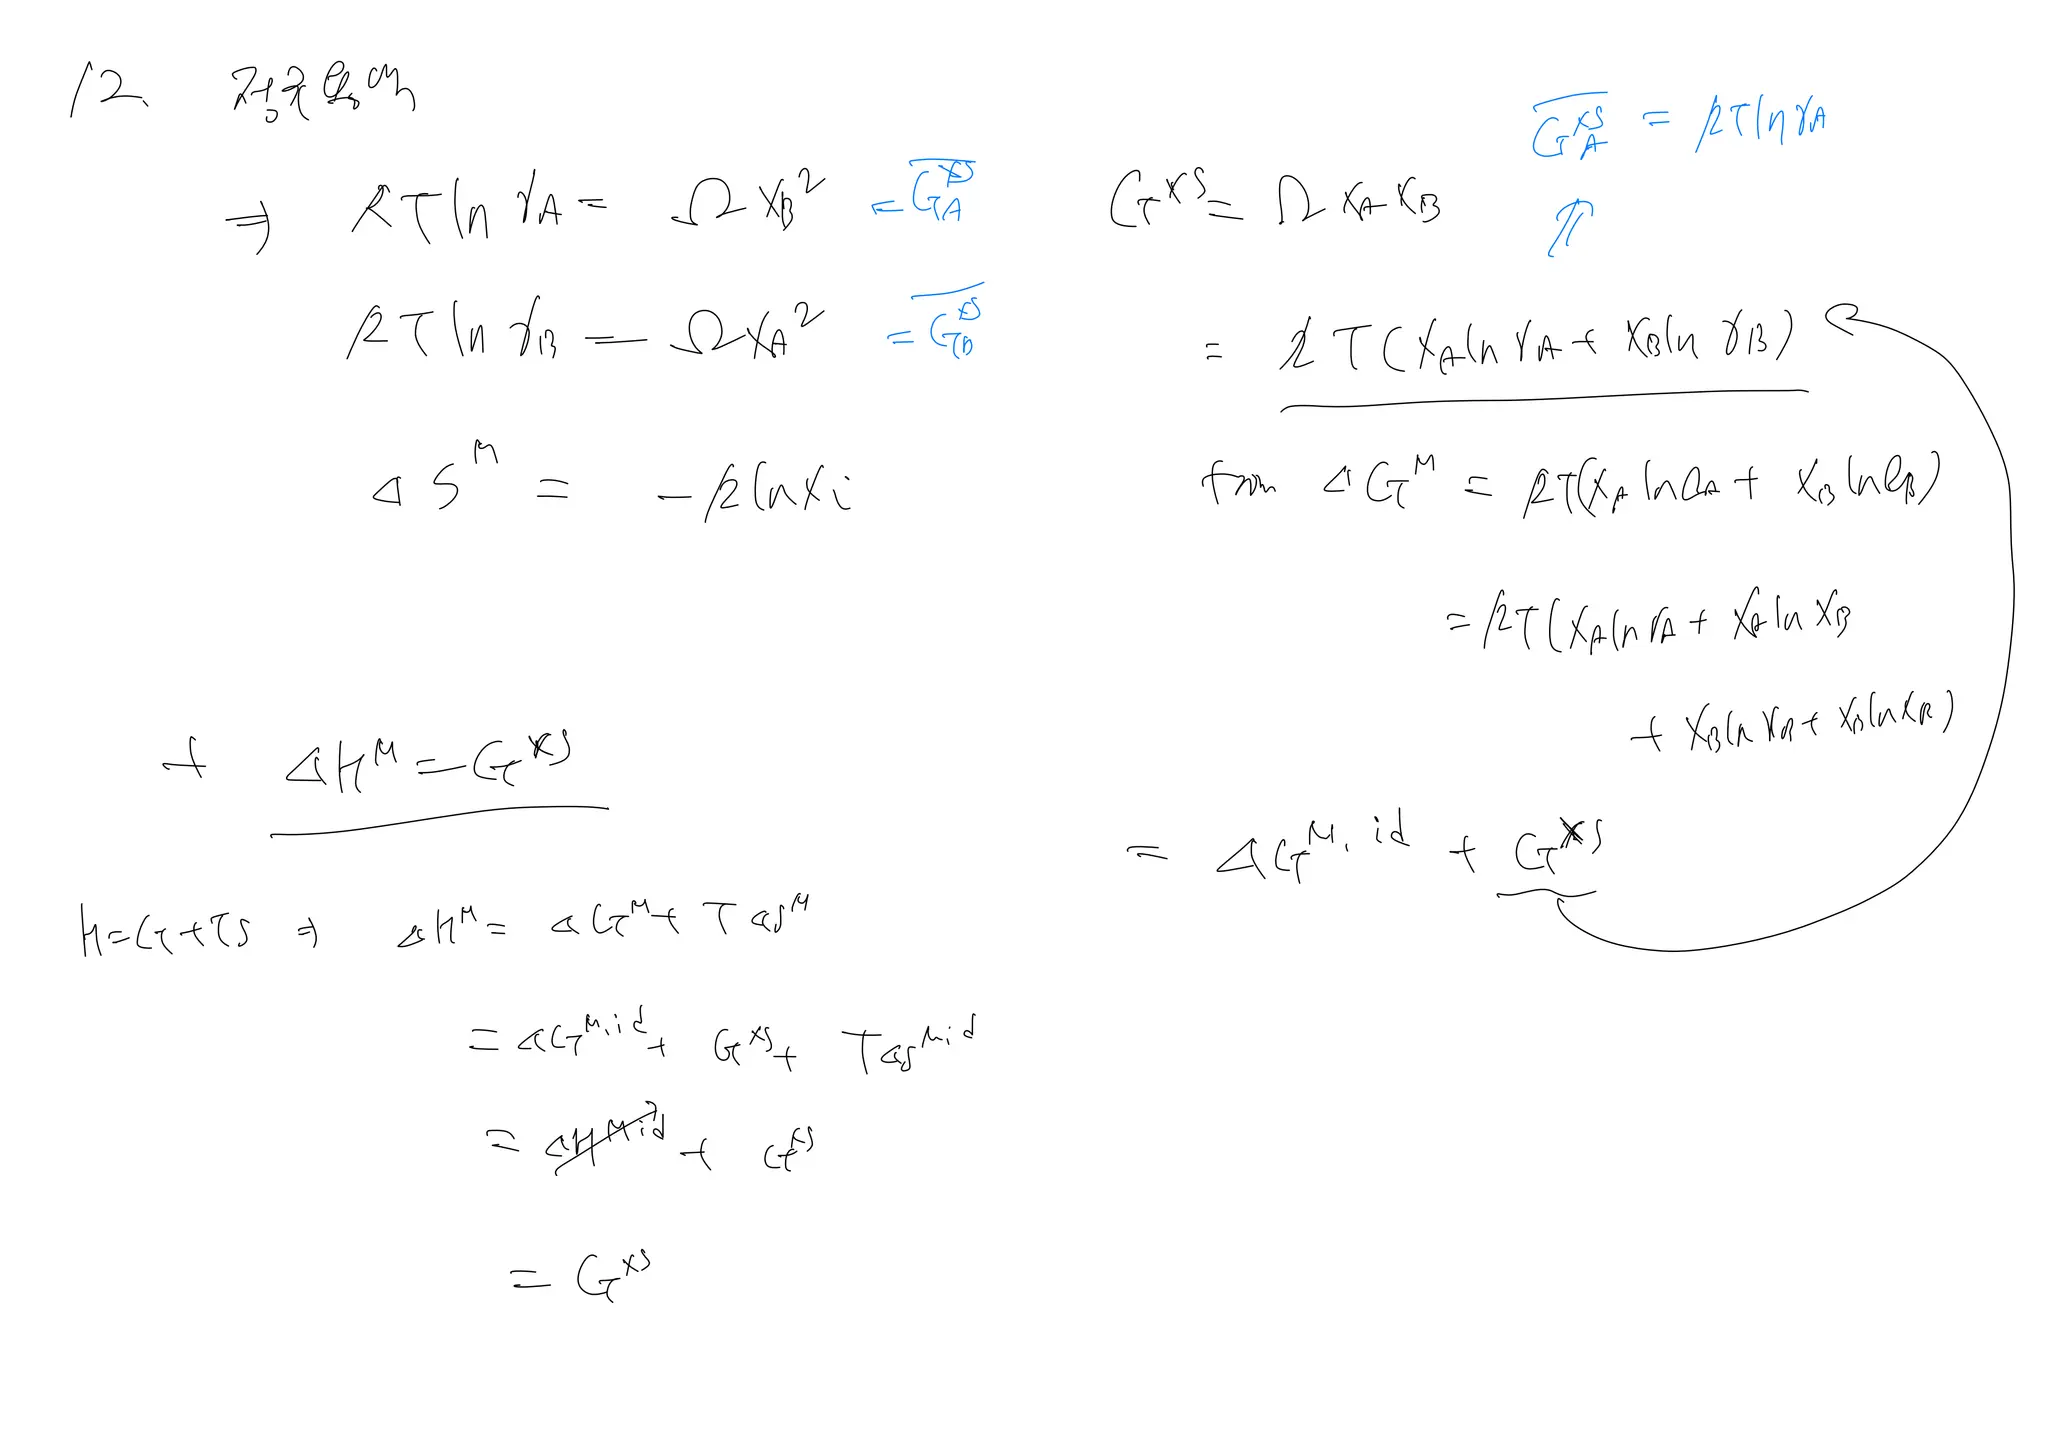 12.
⇒ RT ln γA = Ω XB² = G̅A^xs
RT ln γB = Ω XA² = G̅B^xs
ΔS^M = -R ln Xi
+ ΔH^M = G^xs
H = G + TS ⇒ ΔH^M = ΔG^M + TΔS^M
= ΔG^M,id + G^xs + TΔS^M,id
= ΔH^M,id + G^xs
= G^xs
G̅A^xs = RT ln γA
⇑
G^xs = Ω XA XB
= RT(XA ln γA + XB ln γB)
from ΔG^M = RT(XA ln aA + XB ln aB)
= RT(XA ln γA + XA ln XB
+ XB ln γB + XB ln XB)
= ΔG^M,id + G^xs